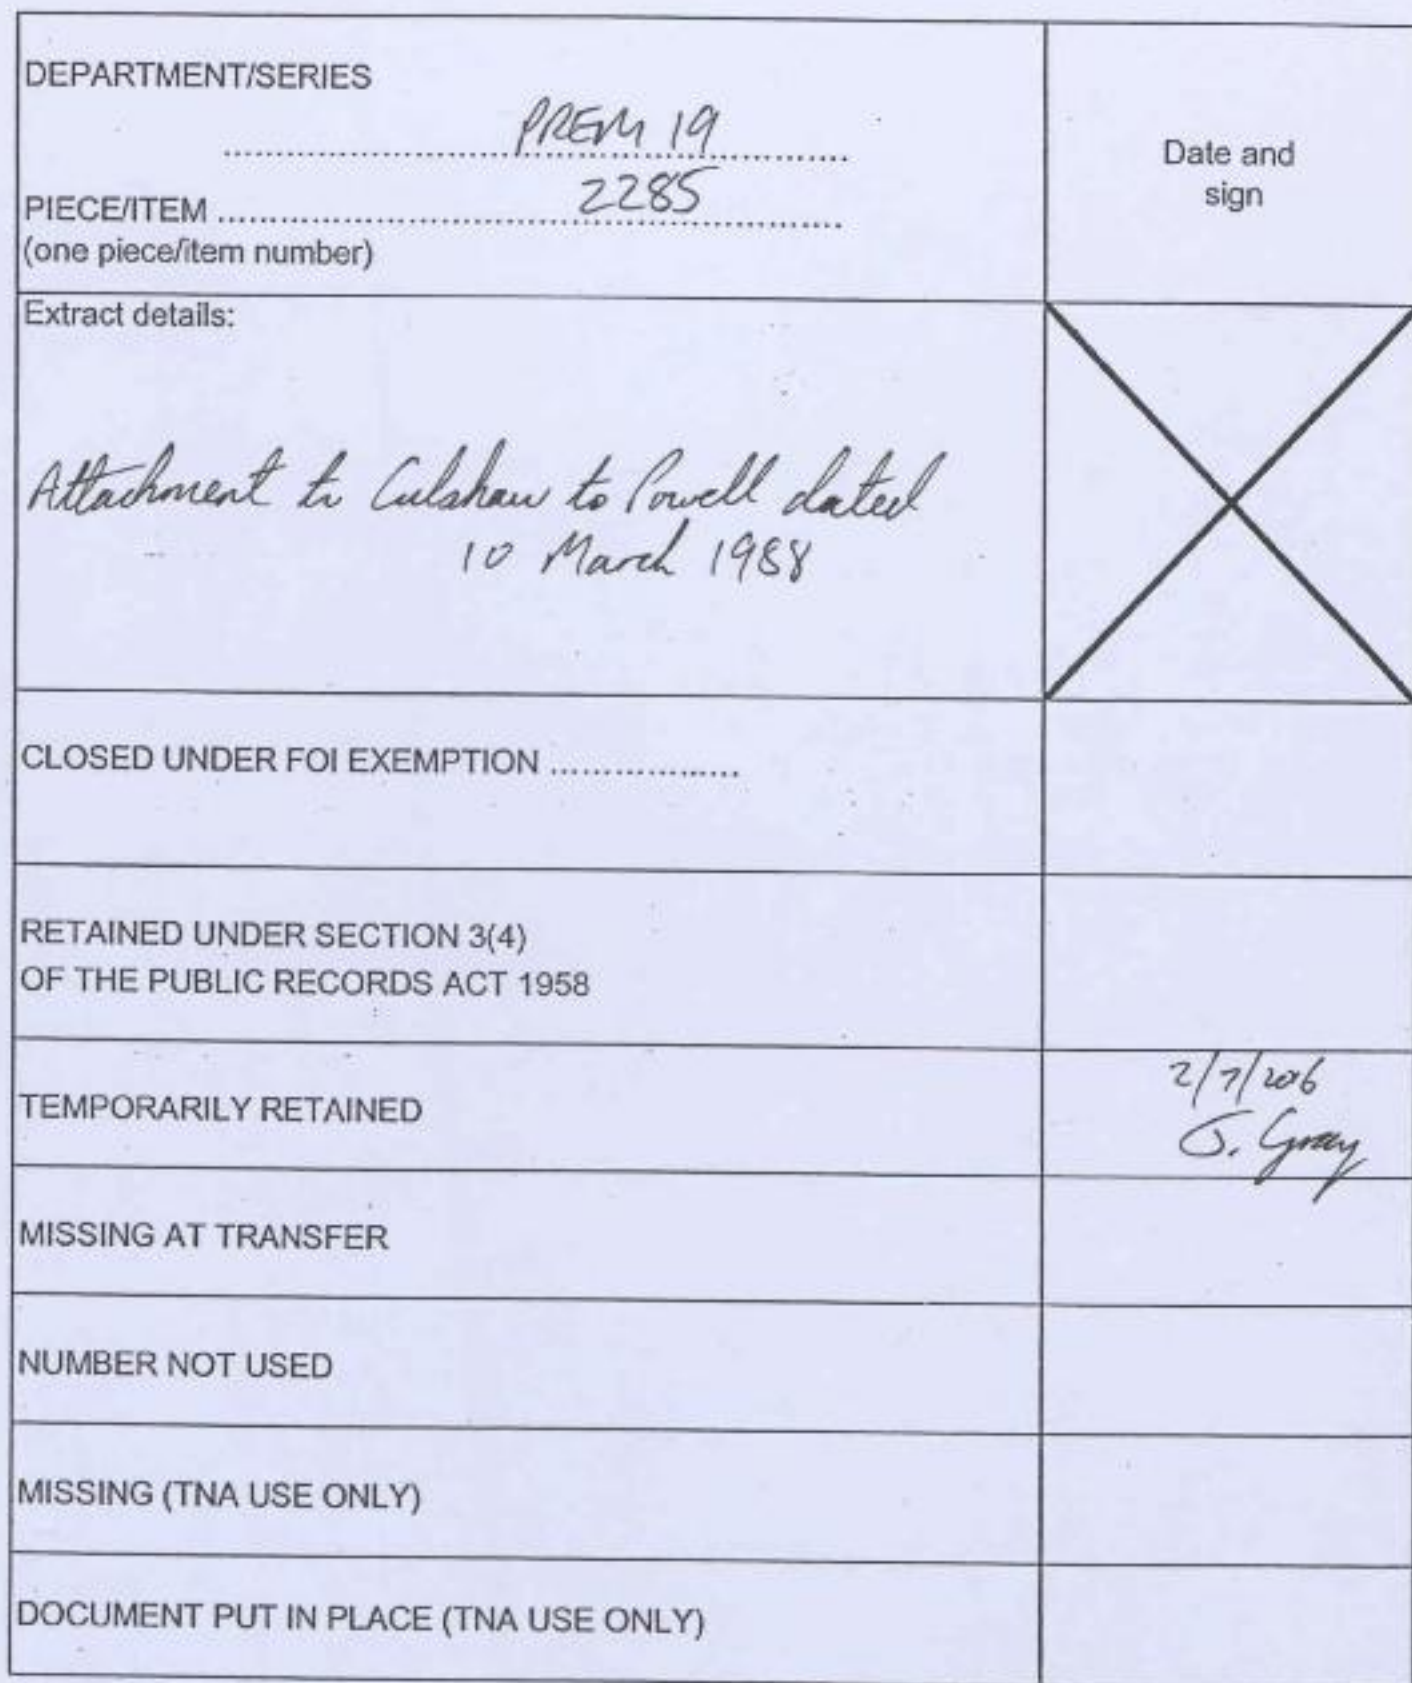 DEPARTMENT/SERIES
PREM 19
Date and
sign
PIECE/ITEM 2285
(one piece/item number)
Extract details:
Attachment to Culshaw to Powell dated
10 March 1988
CLOSED UNDER FOI EXEMPTION
RETAINED UNDER SECTION 3(4)
OF THE PUBLIC RECORDS ACT 1958
TEMPORARILY RETAINED
2/7/2016
J. Gray
MISSING AT TRANSFER
NUMBER NOT USED
MISSING (TNA USE ONLY)
DOCUMENT PUT IN PLACE (TNA USE ONLY)